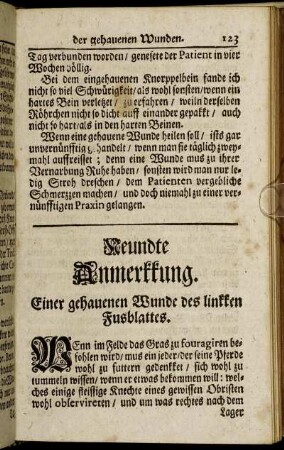 der gehauenen Wunden. 123
Tag verbunden worden / genesete der Patient in vier
Wochen völlig.
Bei dem eingehauenen Knorppelbein fande ich
nicht so viel Schwürigkeit / als wohl sonsten / wenn ein
hartes Bein verletzet / zu erfahren / weiln derselben
Röhrchen nicht so dicht auff einander gepakkt / auch
nicht so hart / als in den harten Beinen.
Wenn eine gehauene Wunde heilen soll / ists gar
unvernünfftig gehandelt / wenn man sie täglich zwey-
mahl auffreisset ; denn eine Wunde mus zu ihrer
Vernarbung Ruhe haben / sonsten wird man nur le-
dig Stroh dreschen / dem Patienten vergebliche
Schmertzen machen / und doch niemahl zu einer ver-
nünfftigen Praxin gelangen.
Neundte
Anmerkkung.
Einer gehauenen Wunde des linkken
Fusblattes.
WEnn im Felde das Gras zu fouragiren be-
fohlen wird / mus ein jeder / der seine Pferde
wohl zu futtern gedenkket / sich wohl zu
tummeln wissen / wenn er etwas bekommen will : wel-
ches einige fleissige Knechte eines gewissen Obristen
wohl observireten / und um was rechtes nach dem
Lager